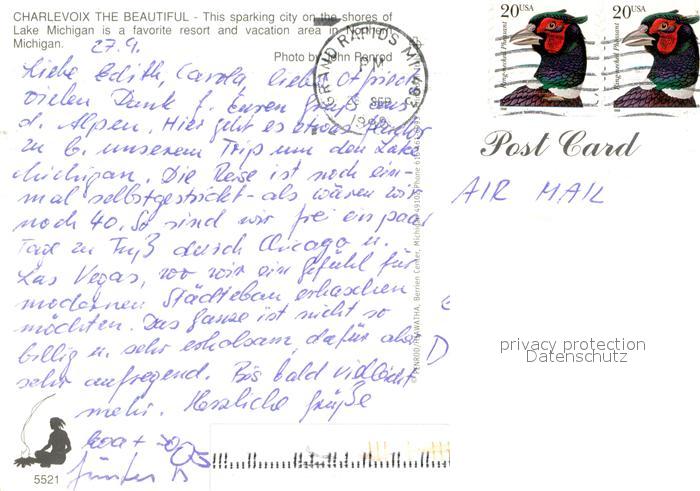 CHARLEVOIX THE BEAUTIFUL - This sparking city on the shores of
Lake Michigan is a favorite resort and vacation area in Northern
Michigan.
Photo by John Penrod
27.9.
Liebe Edith, Carola, lieber
vielen Dank f. Euren Gruß aus
d. Alpen. Hier geht es etwas
zu b. unserem Trip um den Lake
Michigan. Die Reise ist noch ein-
mal selbstgestrickt - als wären wir
noch 40. So sind wir frei ein paar
Tage zu Fuß durch Chicago u.
Las Vegas, wo wir ein Gefühl für
modernen Städtebau erhaschen
möchten. Das Ganze ist nicht so
billig u. sehr erholsam, dafür aber
sehr aufregend. Bis bald vielleicht
mehr. Herzliche Grüße
Günter
5521
GRAND RAPIDS MI
PM
SEP
20USA
Ring-necked Pheasant
20USA
Ring-necked Pheasant
Post Card
AIR MAIL
D
privacy protection
Datenschutz